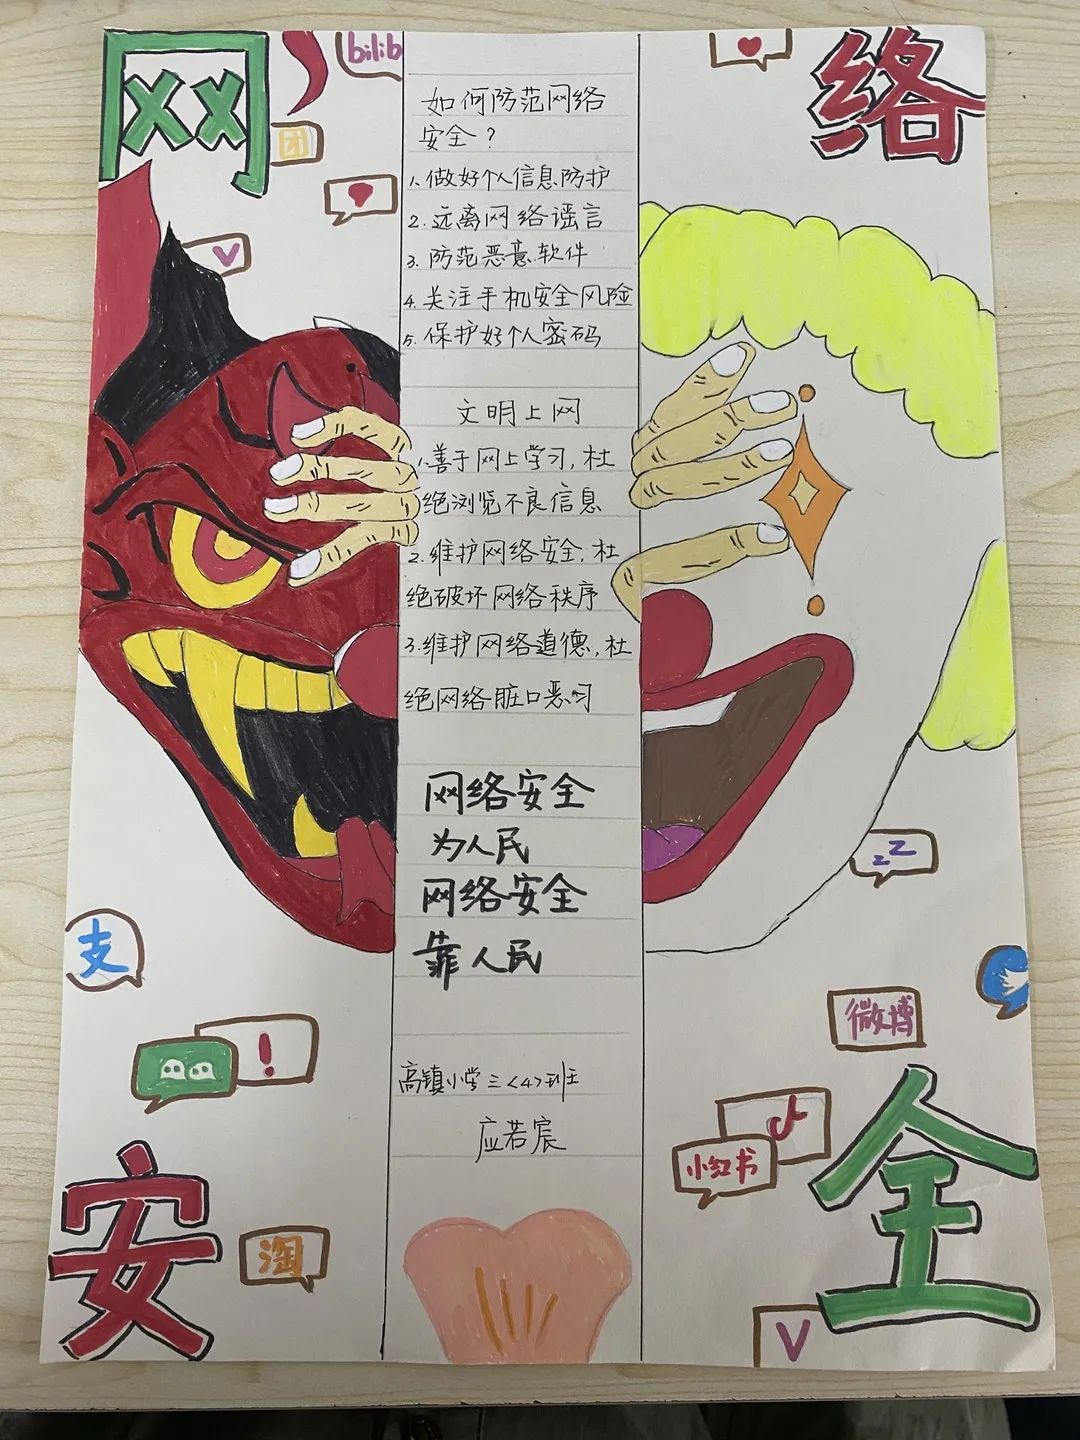 网
络
bilib
团
V
如何防范网络
安全？
1、做好个人信息防护
2、远离网络谣言
3、防范恶意软件
4、关注手机安全风险
5、保护好个人密码
文明上网
1、善于网上学习，杜
绝浏览不良信息
2、维护网络安全，杜
绝破坏网络秩序
3、维护网络道德，杜
绝网络脏口恶习
网络安全
为人民
网络安全
靠人民
zZ
支
微博
!
高镇小学三<4>班
应若宸
小红书
安
全
淘
V